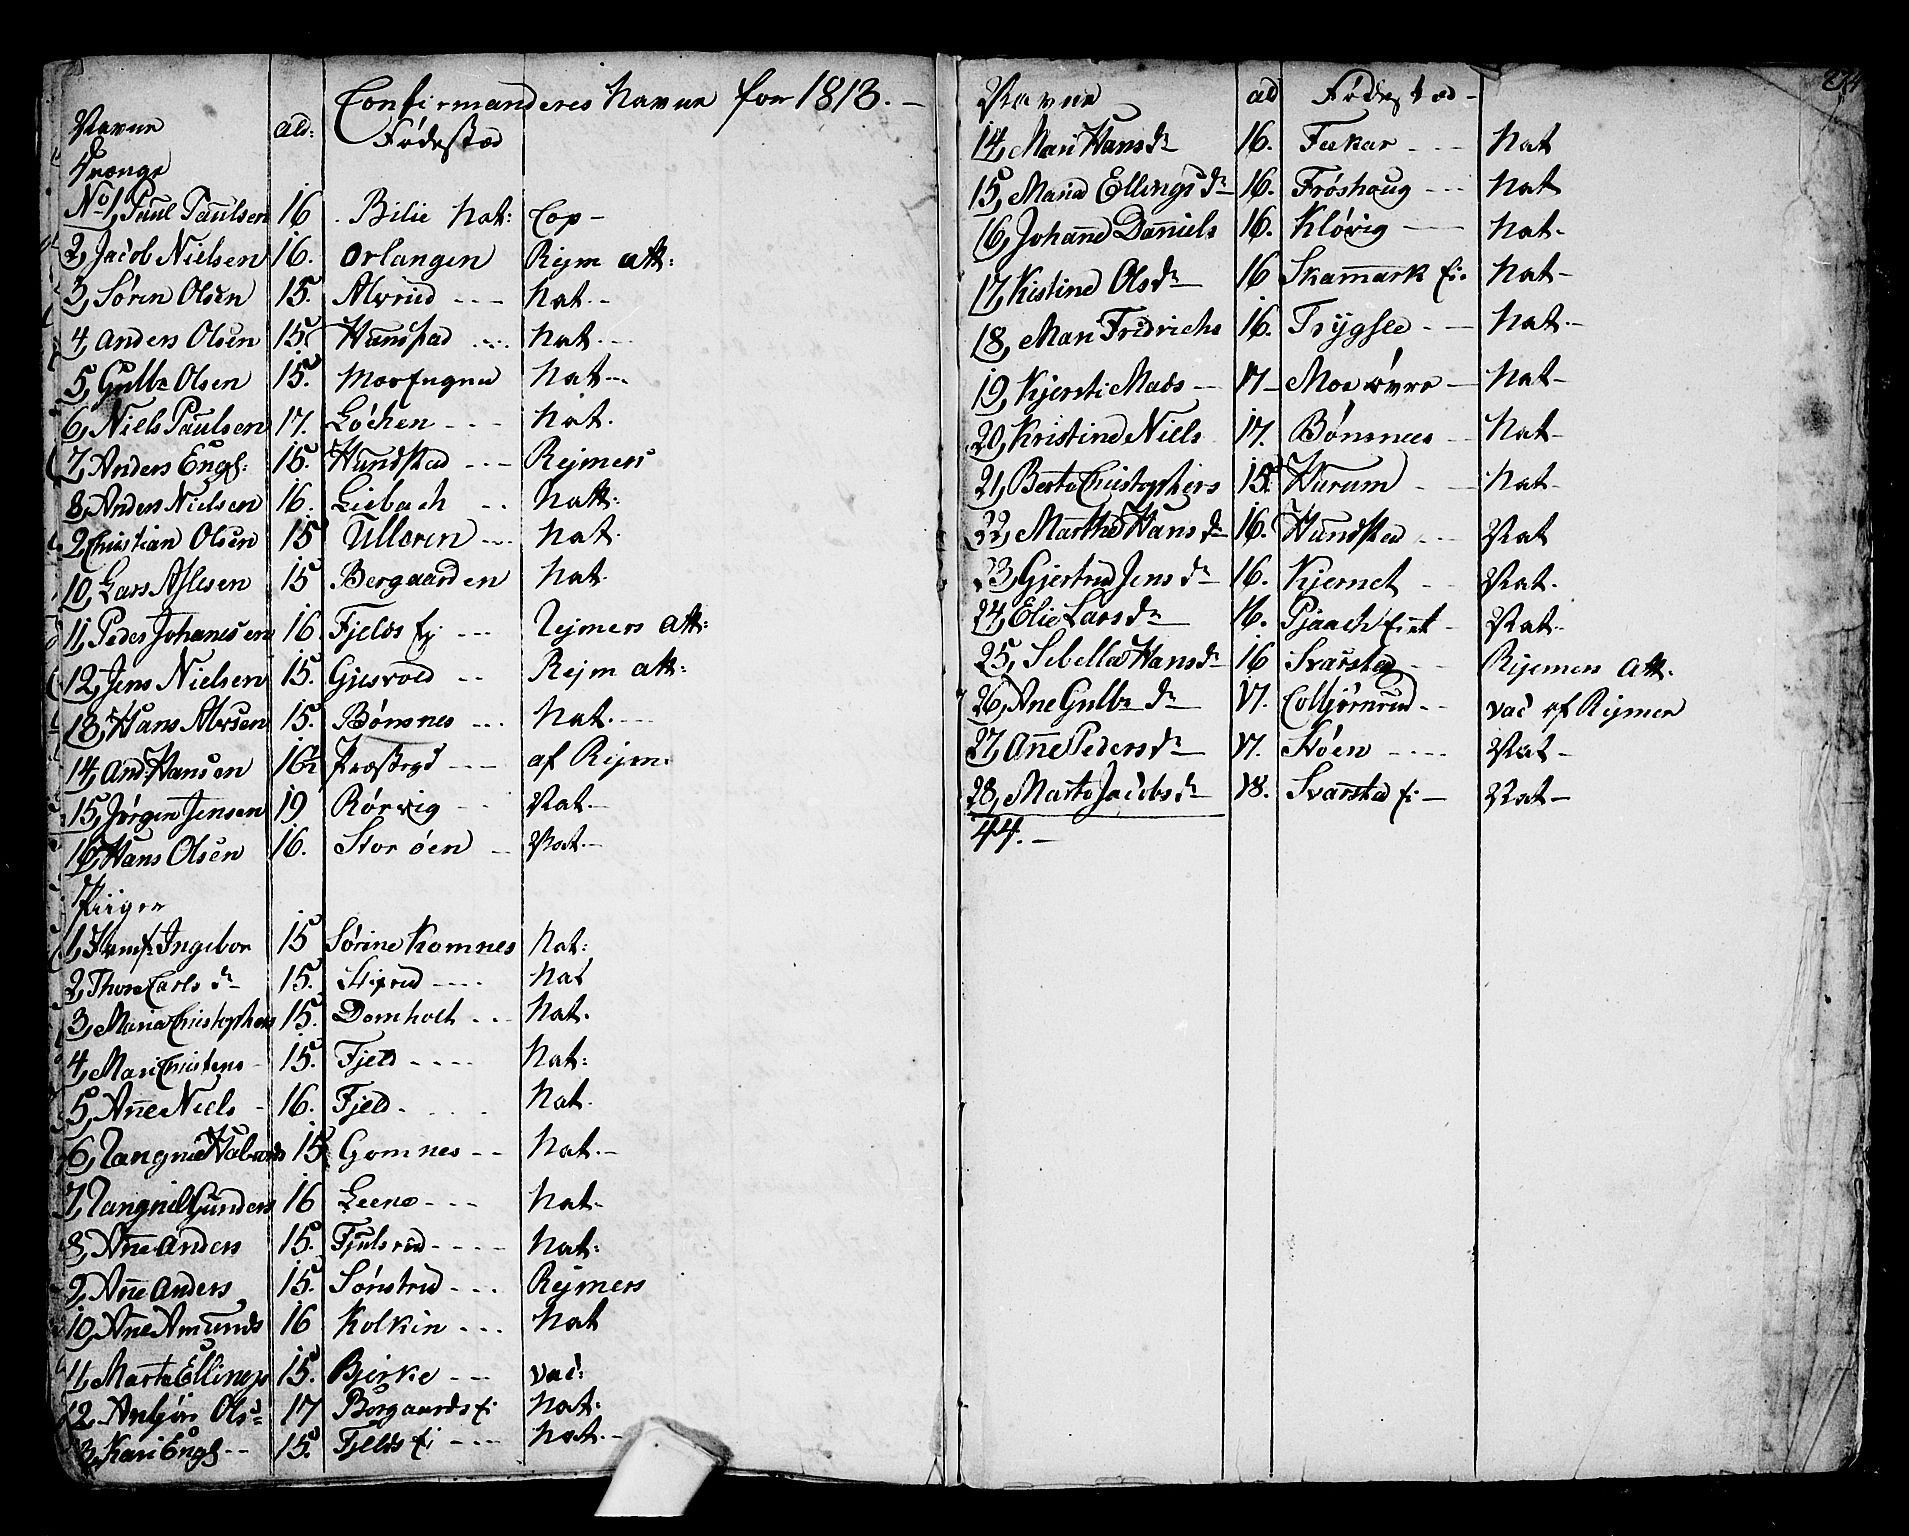 Confirmanderes Navne for 1813. –
Navne ald: Fødestæd
Drænge
No 1, Paul Paulsen 16 Bilie Nat: Cop –
2, Jacob Nielsen 16. Orlangen Rejm att:
3, Søren Olsen 15. Alvrud --- Nat. -
4, Anders Olsen 15 Hunstad --- Nat. --
5, Gulb: Olsen 15. Nat --
6, Niels Paulsen 17. Løchen --- Nat.
7, Anders Engl: 15. Hundstad --- Rejmers
8, Anders Nielsen 16. Liebach -- Natt:
9, Christian Olsen 15 Ulleren --- Nat.
10, Lars Aslesen 15 Bergaarden Nat.
11, Peder Johanesen 16 Fjelds Ej --- Rejmers Att:
12, Jens Nielsen 15. Gjesvold -- Rejm att:
13, Hans Alvsen 15. Bønsnes --- Nat. --
14, And: Hansen 16½ --- af Rejm.
15, Jørgen Jensen 19 Rørvig -- Nat. -
16, Hans Olsen 16. Storøen -- Nat. -
Piiger
1, Jomf: Ingebor 15 Sørine Komnes Nat:
2, Thore Carls dr 15. ---- Nat
3, Maria Christophers 15. Domholt --- Nat.
4, Mari Christens - 15. Fjeld ---- Nat:
5, Anne Niels - 16. Fjeld - - - Nat.
6, Rangnie 15 Gomnes -- Nat. -
7, Rangnild Gunders 16 Leene --- Nat -
8, Anne Anders 15. Fjulsrud ---- Nat:
9, Anne Anders 15. Sønstrud --- Rejmers
10, Anne Amunds 16 Kolkin --- Nat
11, Marte Ellings 15. Bjerke -- vac:
12, Anbjør Ols: 17 Borgaards Ei Nat:
13, Kari Engl -- 15. Fjelds Ei --- Nat. -
Navne ald Fødestæd -
274
14, Mari Hans dr 16. Fekar --- Nat
15, Maria Ellings dr 16. Frøshaug --- Nat
16, Johanne Daniels 16. Kløvig --- Nat -
17, Kistine Ols dr 16 Skamark Ei. Nat -
18, Mari Fridrichs 16. Trygsle -- Nat. -
19, Kjersti Mads -- 17 - Moe øvre - Nat -
20, Kristine Niels 17. Bønsnees -- Nat -
21, Berte Christophers 15. Hurum - Nat -
22, Marthe Hans dr 16. Hundstad --- Nat
23, Gjertrud Jens dr 16. Kjernet -- Nat.
24, Elie Lars dr 16. Pjaach Eiet - Nat -
25, Sebella Hans dr 16 Svarstad -- Rejemers Att.
26, Ane Gulb: dr 17. Colbjørnrud -- vac af Rejmer
27, Anne Peders dr 17. Støen ---- Nat -
28, Marte Jacobs dr 18. Svarstad Ei - Nat -
44. –